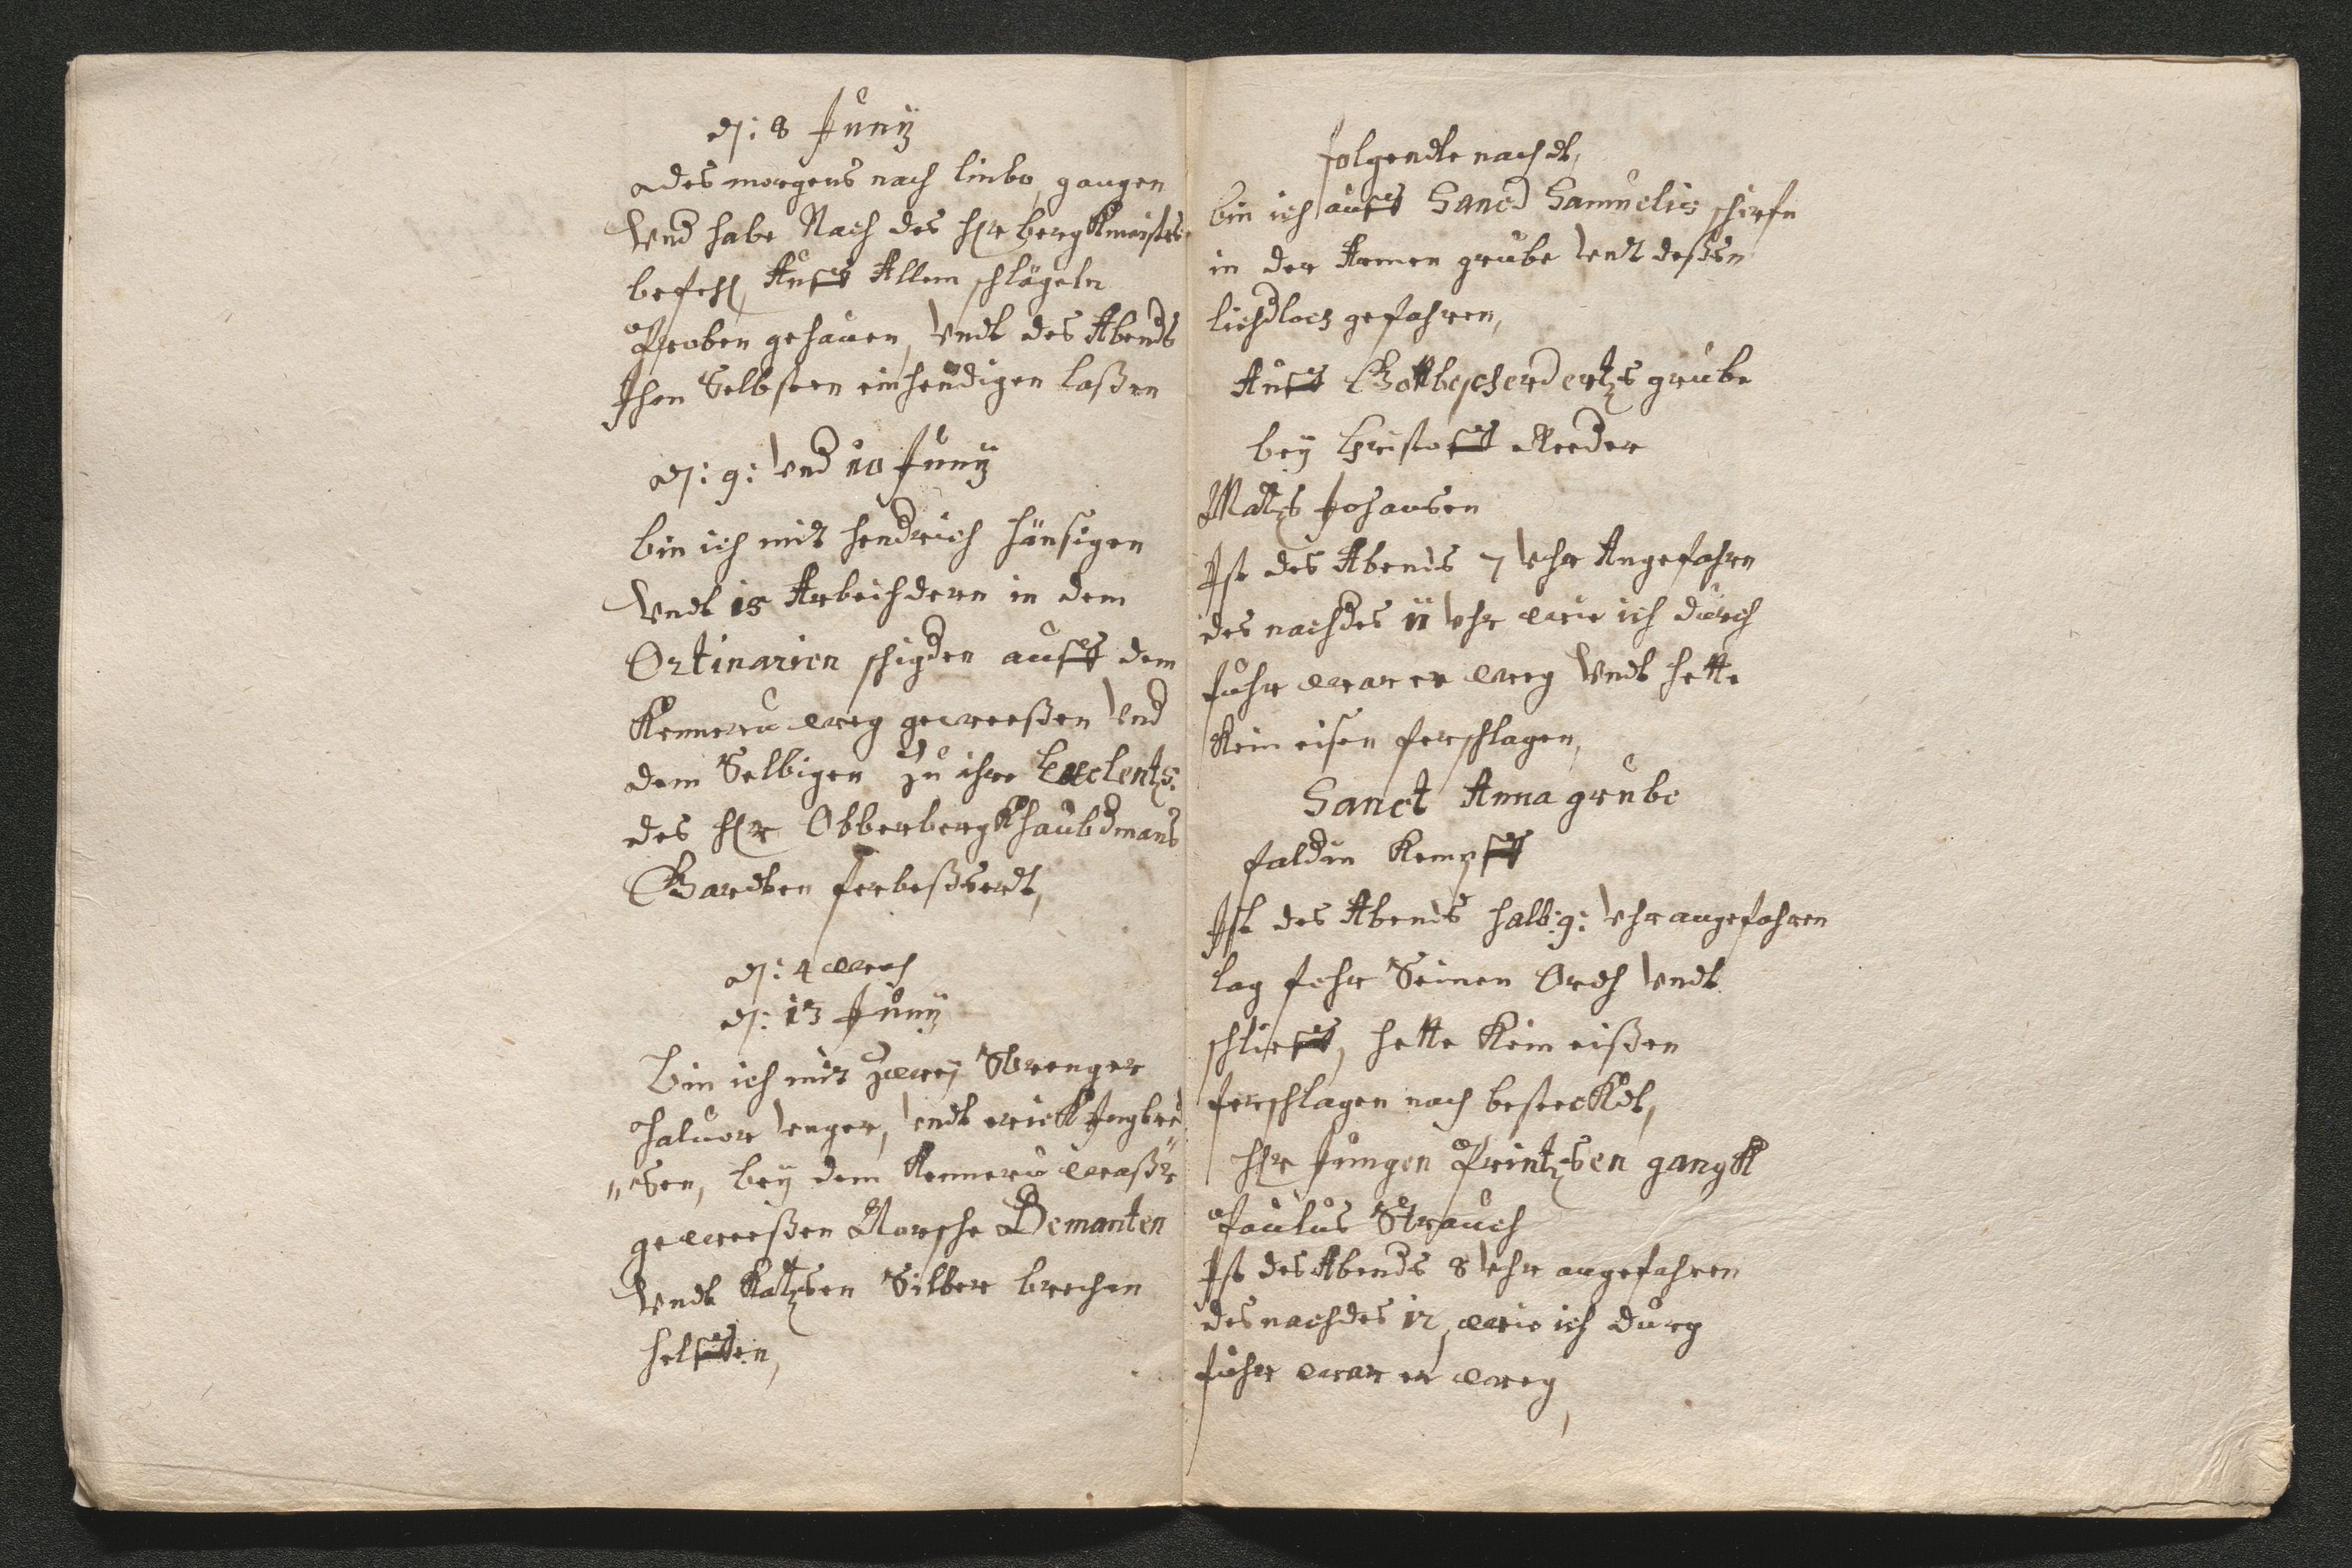 dh: 8 Junÿ
des morgens nach linbo, gangen
Vnd habe Nach des Hr bergkmeisters
befehl, Auff Allem schlägeln
Proben gehauen, Vndt des Abends
Ihm Selbsten einhendigen laßen
dh: 9: Vnd 10 Junÿ
bin ich mit hendrich hänsigen
Vndt 15 Arbeichdern in dem
Ortinarien schigden auff dem
Kenneru weg geweeßen Vnd
dem Selbigen zu ihre Exclentz:
des Hr Obberbergkhaubdmans
Gardten ferbeßserdt,
dh: 4 wech
dh: 13 Junÿ
bin ich mit zweÿ Strenger
Haluor enger, Vndt erick Ingbre
"sen, beÿ dem Kenneru waßr
geweeßen Norsche Demanten
Vndt Katzsen Silber brechen
helfften,
folgendte nachdt,
bin ich auff Sancd Samuelis schirfn
in der Armen grube Vndt deßsen
lichdloch gefahren,
Auff Gottbescherdertzs grube
beÿ Christoff Reeder
Matzs Johansen
Ist des Abends 7 Vhr Angefahrn
des nachdes 11 Vhr wie ich durch
fuhr war er weg Vndt hette
Kein eisen ferschlagen,
Sanct Anna grube
faldin Kempff
Ist des Abends halb: 9: Vhr angefahren
lag fohr Seinen Ordh Vndt
schlieff, hette Kein eißen
ferschlagen noch besteckdt,
Hr Jungen Printzsen gangk
Paulus Strauch
Ist des Abends 8 Vhr angefahren
des nachdes 12, wie ich durg
fuhr war er weg,